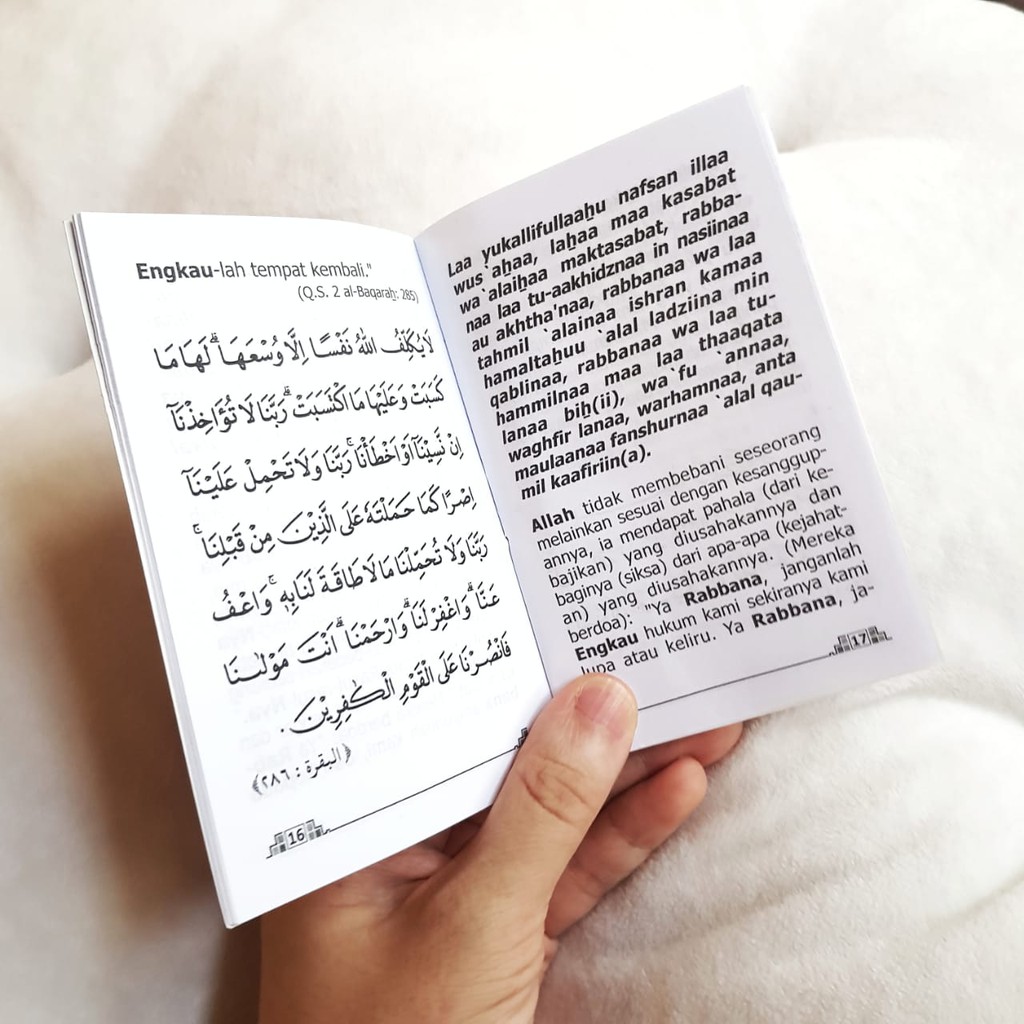 Engkau-lah tempat kembali."
(Q.S. 2 al-Baqaraẖ: 285)
لَا يُكَلِّفُ اللّٰهُ نَفْسًا اِلَّا وُسْعَهَا ۗ لَهَا مَا
كَسَبَتْ وَعَلَيْهَا مَا اكْتَسَبَتْ ۗ رَبَّنَا لَا تُؤَاخِذْنَآ
اِنْ نَّسِيْنَآ اَوْ اَخْطَأْنَا ۚ رَبَّنَا وَلَا تَحْمِلْ عَلَيْنَآ
اِصْرًا كَمَا حَمَلْتَهٗ عَلَى الَّذِيْنَ مِنْ قَبْلِنَا ۚ
رَبَّنَا وَلَا تُحَمِّلْنَا مَا لَا طَاقَةَ لَنَا بِهٖ ۚ وَاعْفُ
عَنَّا ۗ وَاغْفِرْ لَنَا ۗ وَارْحَمْنَا ۗ اَنْتَ مَوْلٰىنَا
فَانْصُرْنَا عَلَى الْقَوْمِ الْكٰفِرِيْنَ .
﴿البقرة : ٢٨٦﴾
16
Laa yukallifullaaẖu nafsan illaa
wus`aẖaa, laẖaa maa kasabat
wa`alaiẖaa maktasabat, rabba-
naa laa tu-aakhidznaa in nasiinaa
au akhtha'naa, rabbanaa wa laa
tahmil `alainaa ishran kamaa
hamaltaẖuu `alal ladziina min
qablinaa, rabbanaa wa laa tu-
hammilnaa maa laa thaaqata
lanaa biẖ(ii), wa`fu `annaa,
waghfir lanaa, warhamnaa, anta
maulaanaa fanshurnaa `alal qau-
mil kaafiriin(a).
Allah tidak membebani seseorang
melainkan sesuai dengan kesanggup-
annya, ia mendapat pahala (dari ke-
bajikan) yang diusahakannya dan
baginya (siksa) dari apa-apa (kejahat-
an) yang diusahakannya. (Mereka
berdoa): "Ya Rabbana, janganlah
Engkau hukum kami sekiranya kami
lupa atau keliru. Ya Rabbana, ja-
17